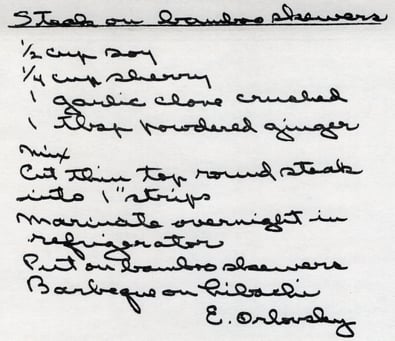 Steak on bamboo skewers
1/2 cup soy
1/4 cup sherry
1 garlic clove crushed
1 tbsp powdered ginger
mix
Cut thin top round steak
into 1" strips
Marinate overnight in
refrigerator
Put on bamboo skewers
Barbeque on hibachi
E. Orlovsky